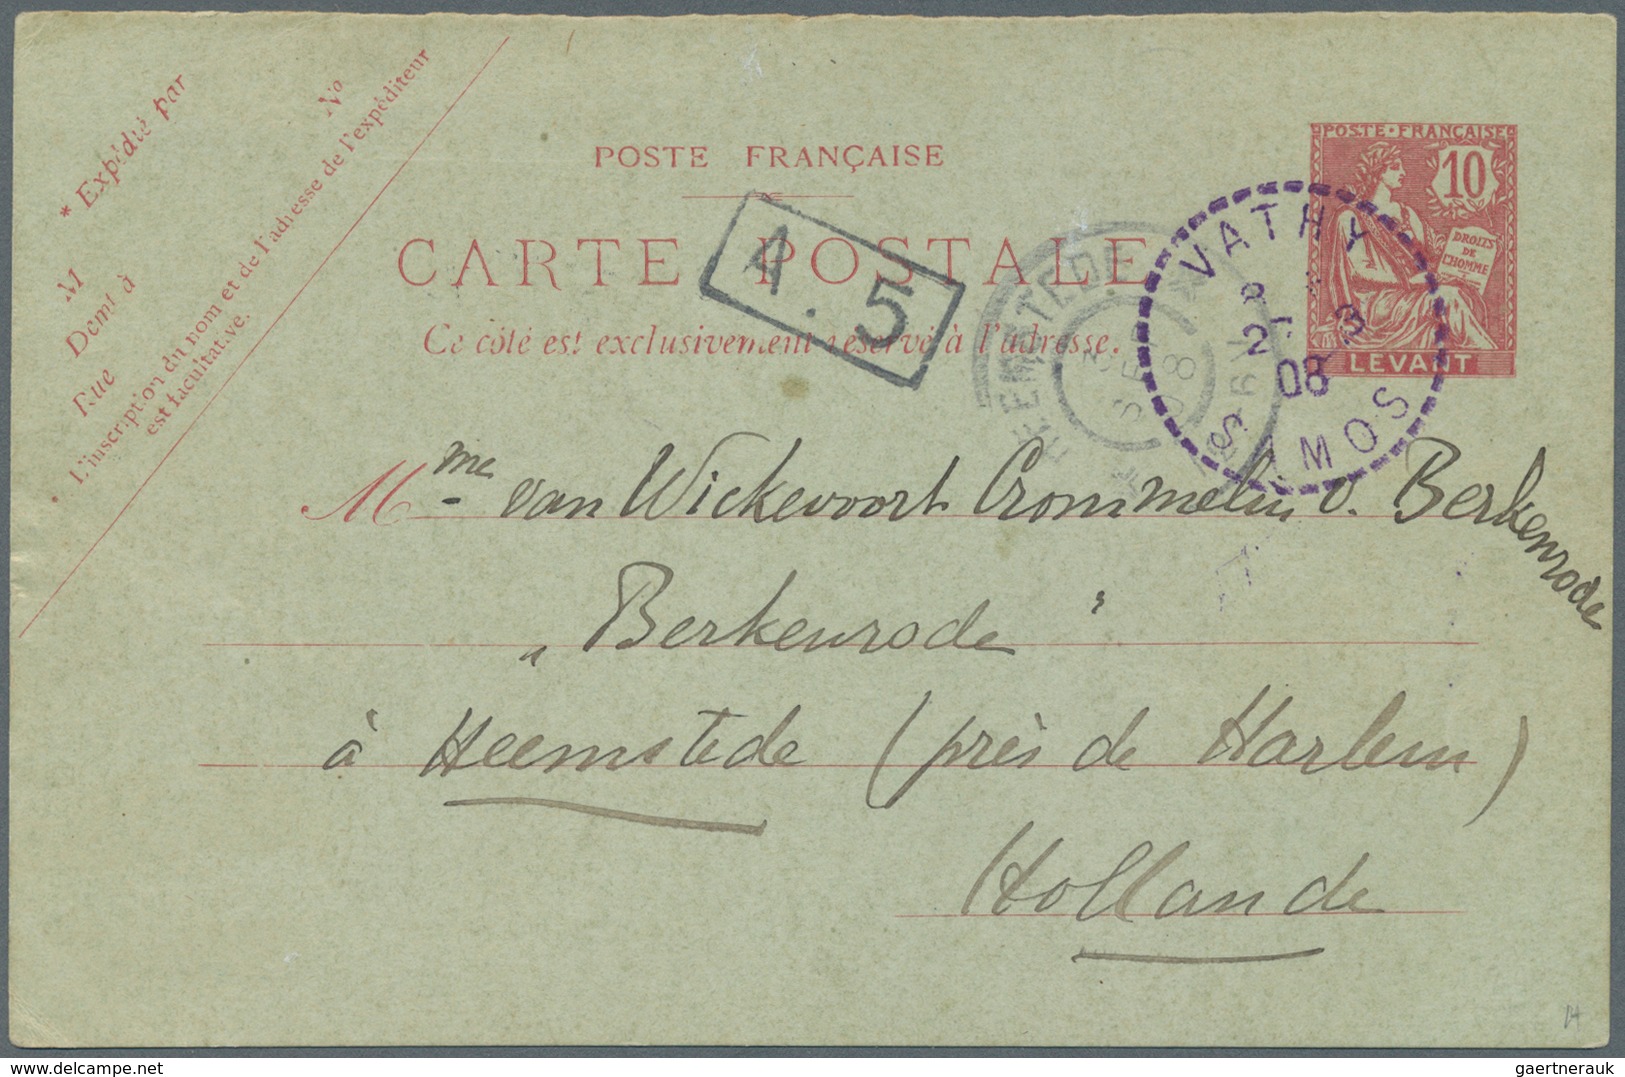 * Expédié par
No
M
Demt à
Rue
L'inscription du nom et de l'adresse de l'expéditeur
est facultative.
POSTE FRANÇAISE
CARTE POSTALE
Ce côté est exclusivement réservé à l'adresse.
A. 5
HEEMSTEDE
SEP
08
POSTE·FRANÇAISE
10
DROITS
DE
L'HOMME
LEVANT
VATHY
08
SAMOS
Mme van Wickevoort Crommelin v. Berkenrode
„Berkenrode"
à Heemstede (près de Harlem)
Hollande
gaertnerauk / www.delcampe.net